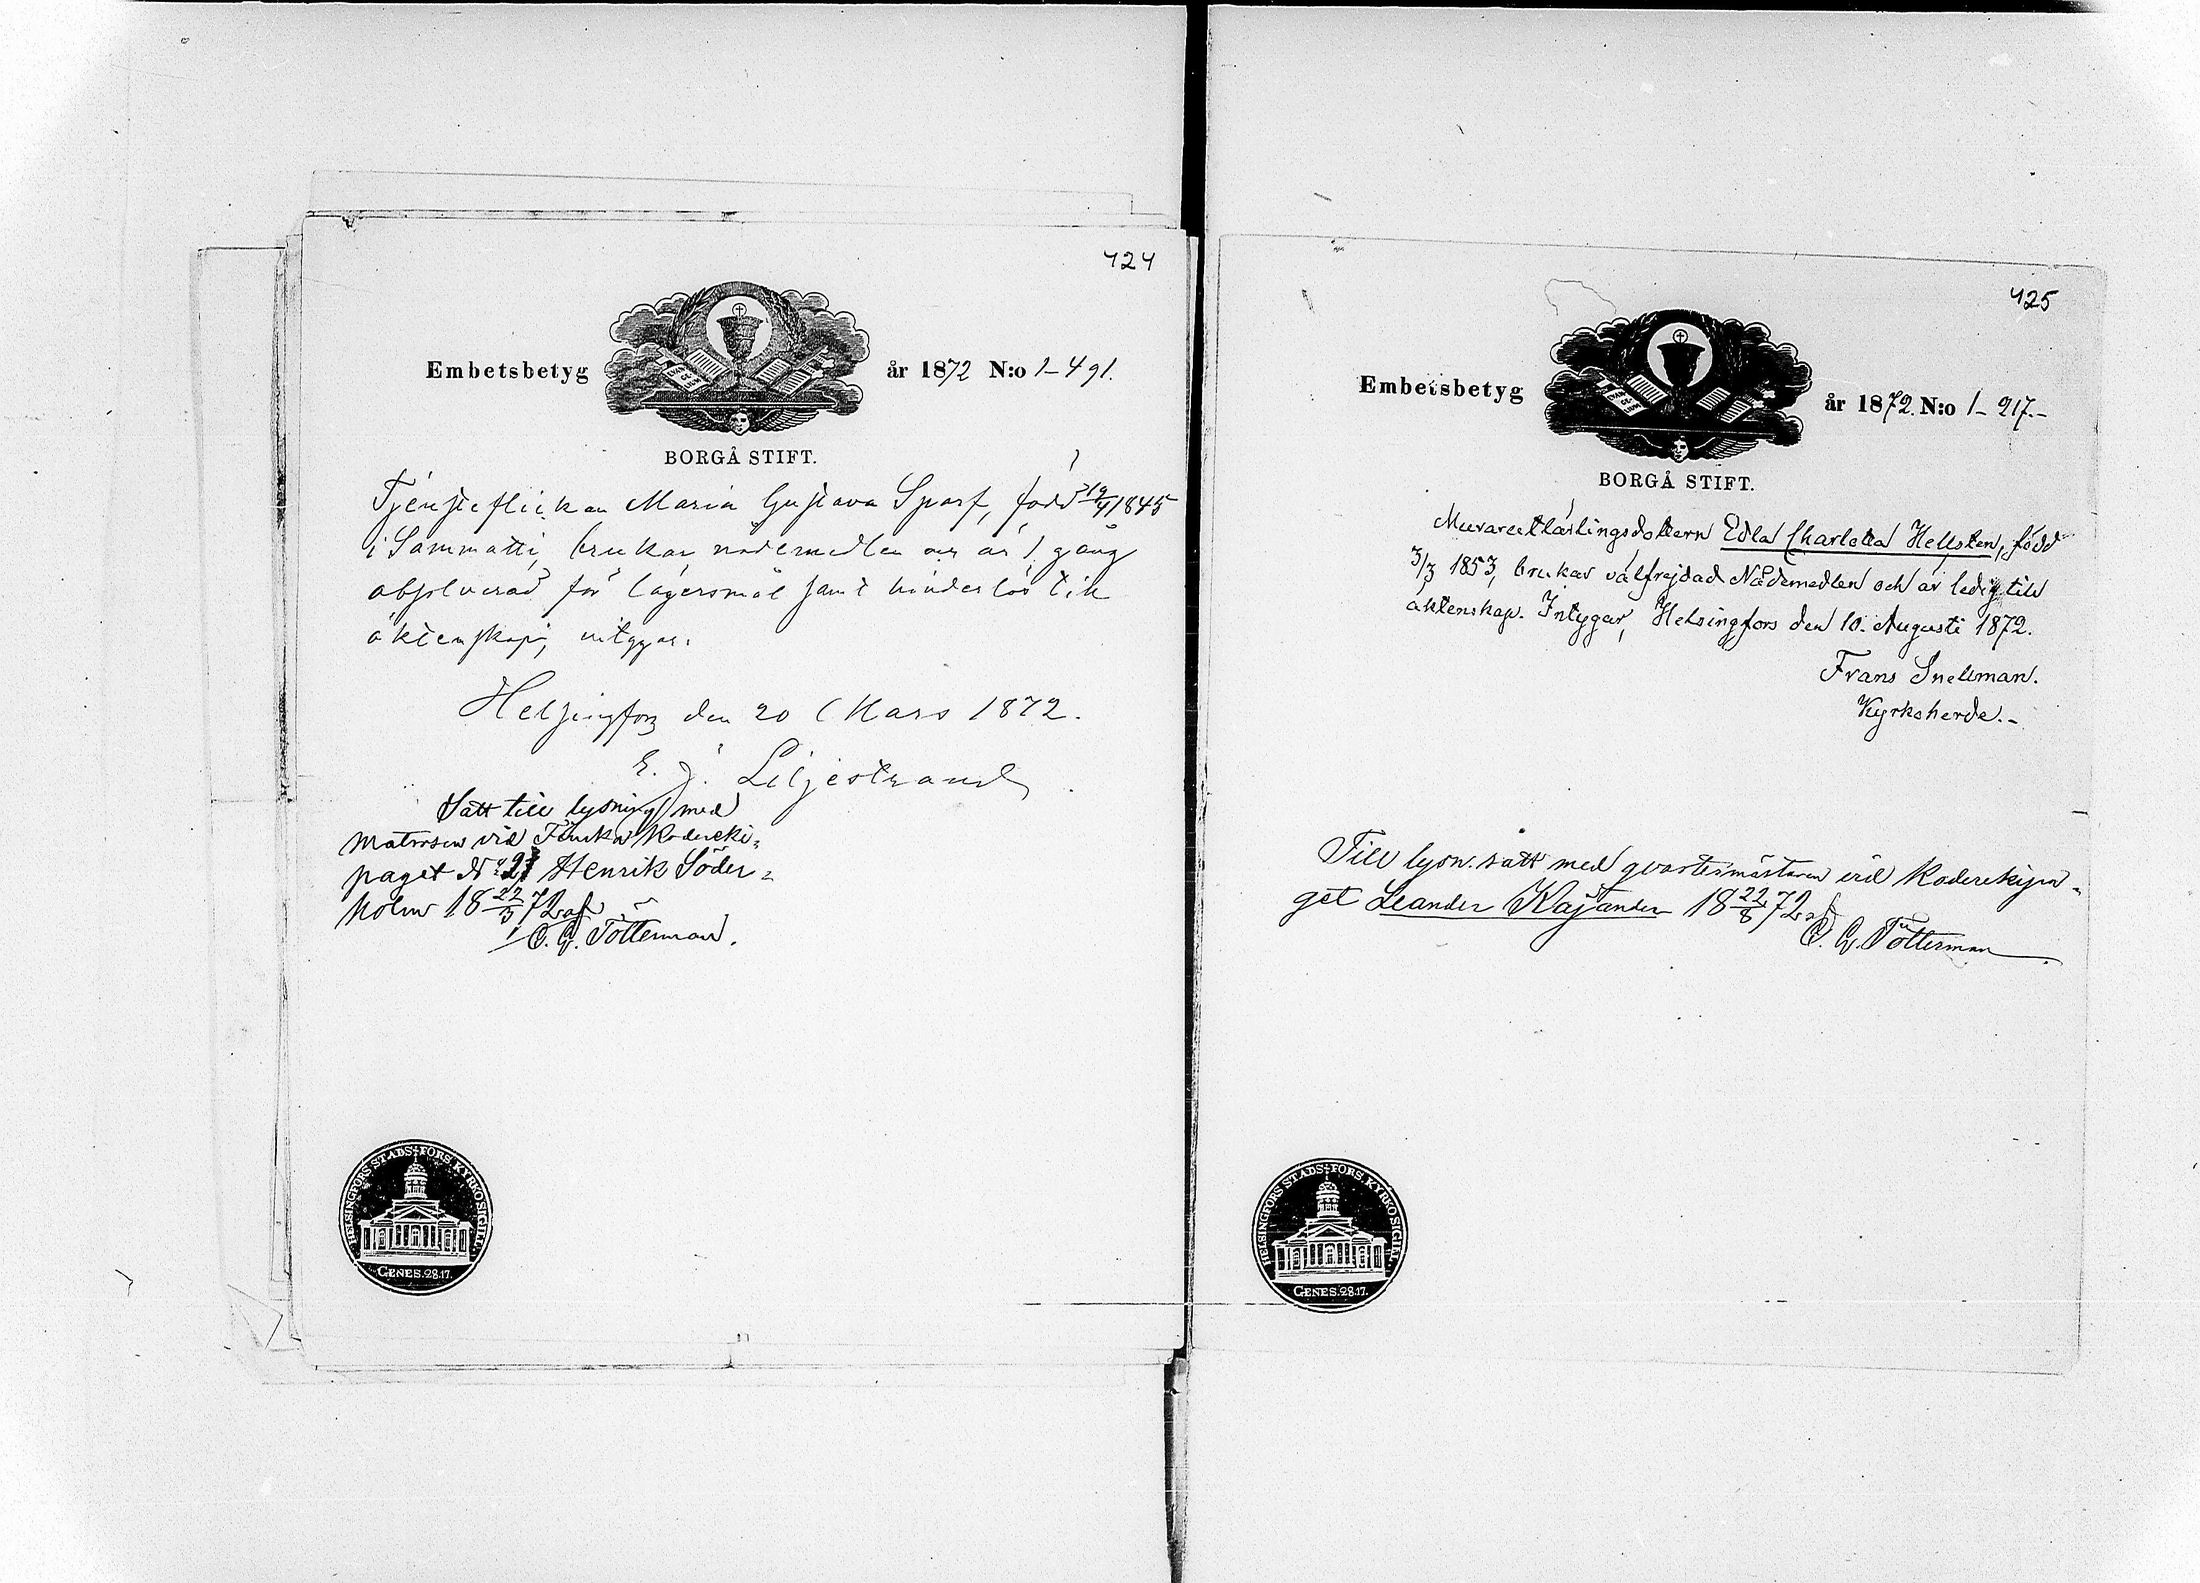 424
Embetsbetyg år 1872 N:o 1-491.
BORGÅ STIFT.
Tjensteflickan Maria Gustava Sparf, född 19/4 1845
i Sammatti, brukar nådemedlen och är 1 gång
absolverad för lägersmål samt hinderlös till
äktenskap, intygar.
Helsingfors den 20 Mars 1872.
E. J. Liljestrand
Satt till lysning med
matrosen vid Finska Kadereki-
paget N:o Henrik Söder-
holm 18 22/3 72 af
C. G. Tötterman.
HELSINGFORS STADS FÖRS. KYRKOSIGILL.
GENES. 28.17.
425
Embetsbetyg år 1872. N:o 1-217.-
BORGÅ STIFT.
Murarelärlingsdottern Edla Charlotta Hellsten, född
3/3 1853, brukar välfrejdad Nådemedlen och är ledig till
äktenskap. Intygar, Helsingfors den 10. Augusti 1872.
Frans Snellman.
Kyrkoherde.-
Till lysn. satt med qvartermästaren vid Kaderekipa-
get Leander Kajander 18 22/8 72 af
C. G. Tötterman
HELSINGFORS STADS FÖRS. KYRKOSIGILL.
GENES. 28.17.